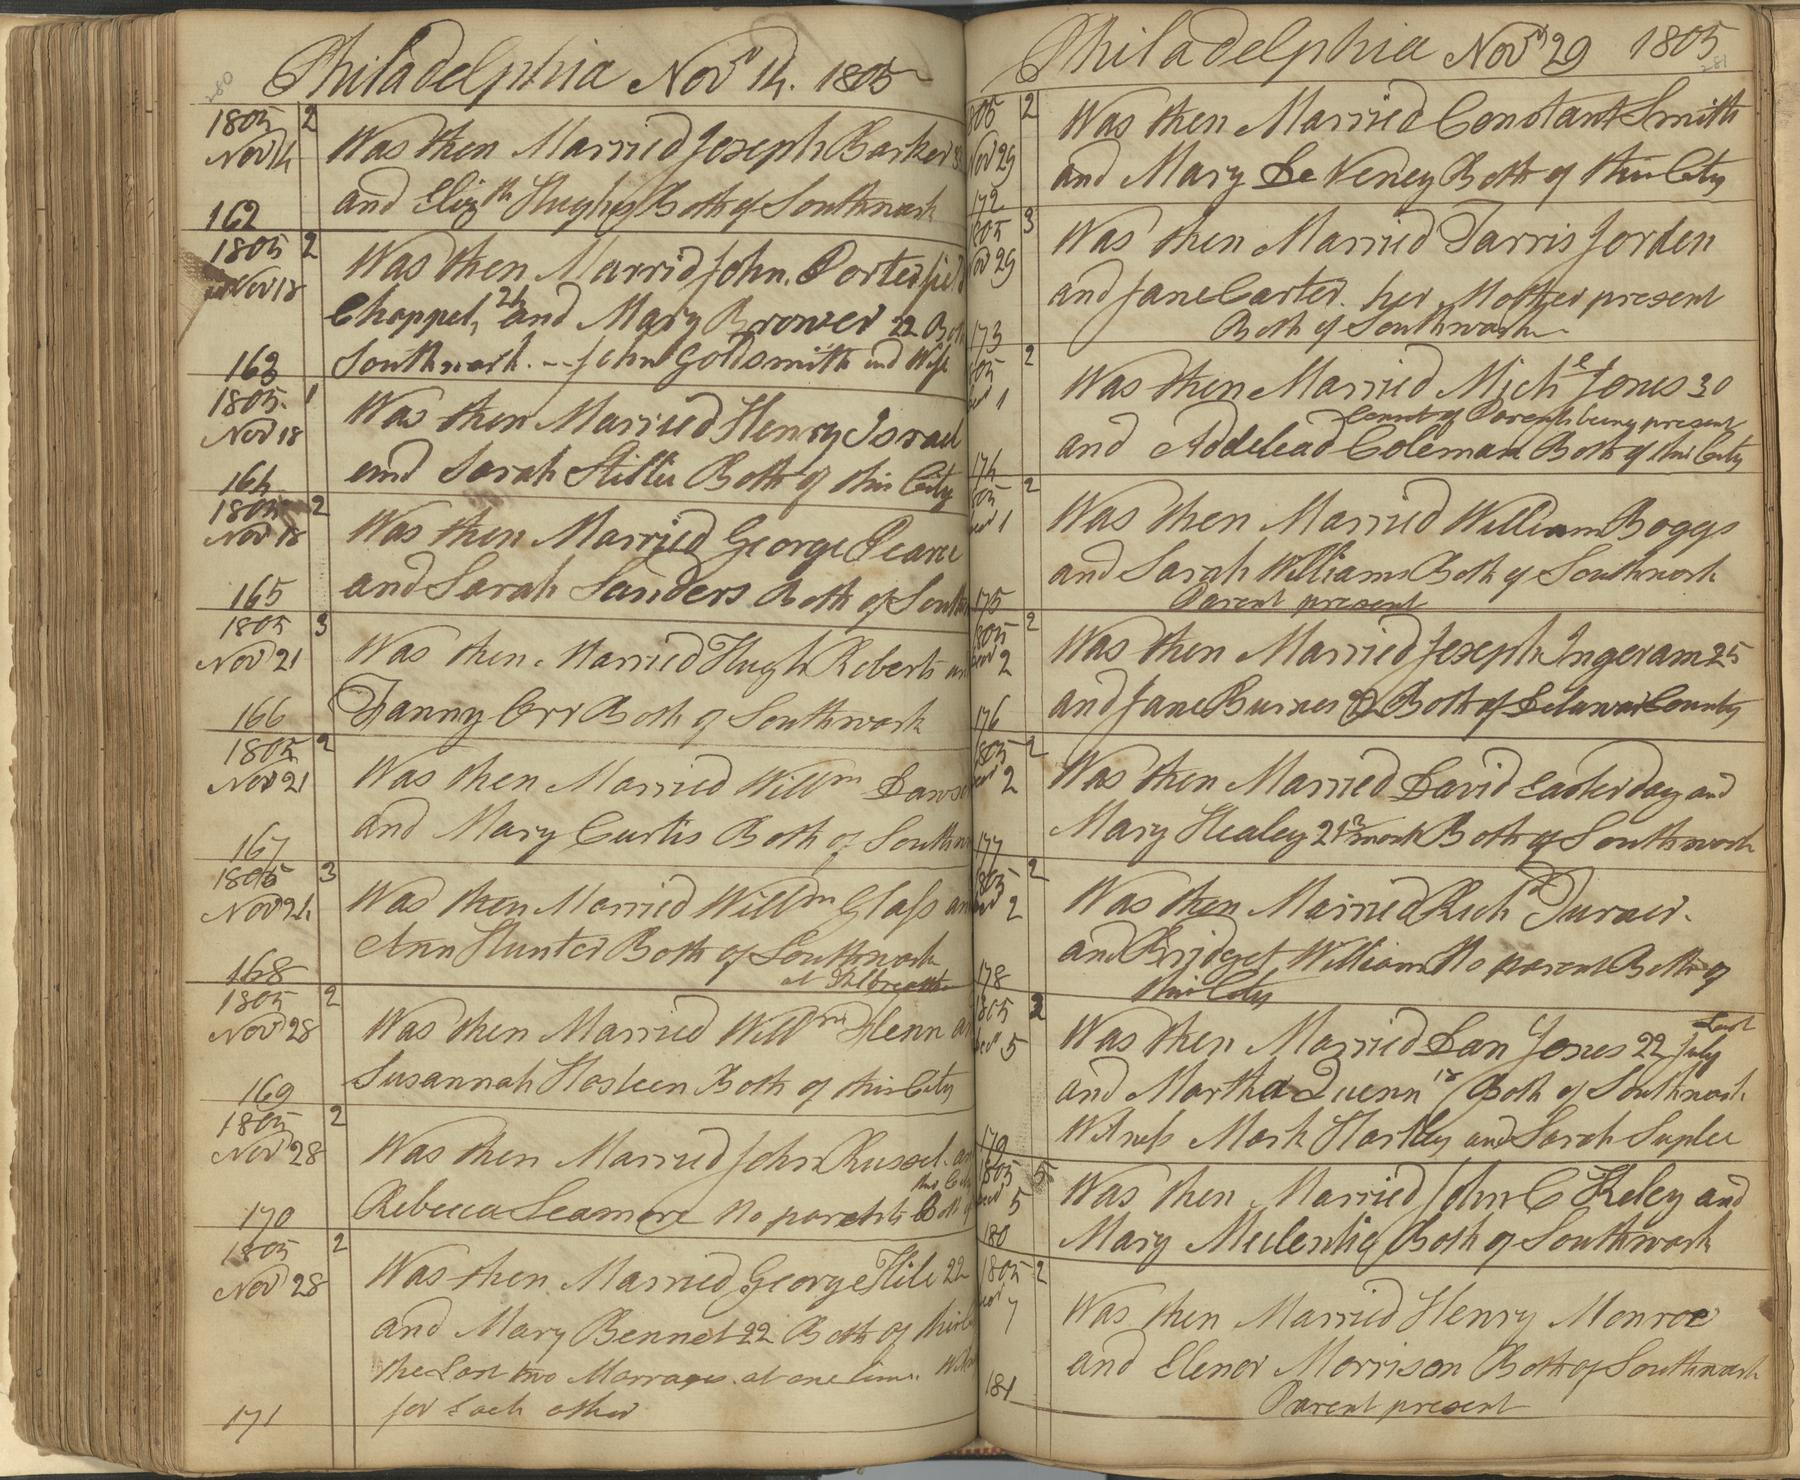 280
Philadelphia Novr 14. 1805
1805 2
Nov 14
Was then Married Joseph Barker
and Elizth Hughs Both of Southwark
162
1805 2
Nov 18
Was then Marrid John Porterfield
Chappel, 24 and Mary Brower 22 Both
Southwark. -- John Goldsmith and Wife
163
1805. 1
Nov 18
Was then Married Henry Israel
and Sarah Both of this City
164
1805 2
Nov 18
Was then Married George Pearce
and Sarah Sanders Both of South
165
1805 3
Nov 21
Was then Married Hugh Roberts an
Fanny Orr Both of Southwark
166
1805 2
Nov 21
Was then Married Willm Daws
and Mary Curtis Both of Southw
167
1805 3
Nov 24
Was then Married Willm Glass an
Ann Hunter Both of Southwark
at
168
1805 2
Nov 28
Was then Married Willm Henn an
Susannah Hosteen Both of this City
169
1805 2
Nov 28
Was then Married John Russel. an
this City
Rebecca Leamore No parents Both of
170
1805 2
Nov 28
Was then Married George Hile 22
and Mary Bennet 22 Both of this
the Last two Marrages at one time. Witn
for Each other
171
281
Philadelphia Novr 29 1805
805 2
Nov 29
Was then Married Constant Smith
and Mary De Veney Both of this City
172
805 3
Nov 29
Was then Married Farris Jorden
and Jane Carter. her Mother present
Both of Southwark
173
805 2
1
Was then Married Michl Jones 30
Consent of Parents being present
and Addelead Coleman Both of this City
174
805 2
1
Was then Married William Boggs
and Sarah Williams Both of Southwark
Parent present
175
1805 2
2
Was then Married Joseph Ingeram 25
and Jane Burnes 22 Both of Delawar County
176
1805 2
2
Was then Married David Easterday and
Mary Healey 21 Both of Southwark
177
1805 2
2
Was then Married Richd Turner.
and Bridget William No parent Both of
this City
178
1805 2
Decr 5
Last
Was then Married Dan Jones 22 July
and Martha Quenn 18 / Both of Southwark
Witness Mark Hartley and Sarah Suplee
179
1805 5
5
Was then Married John C Keley and
Mary Mulentig Both of Southwark
180
1805 2
7
Was then Married Henry Monroe
and Elenor Morrison Both of Southwark
Parent present
181